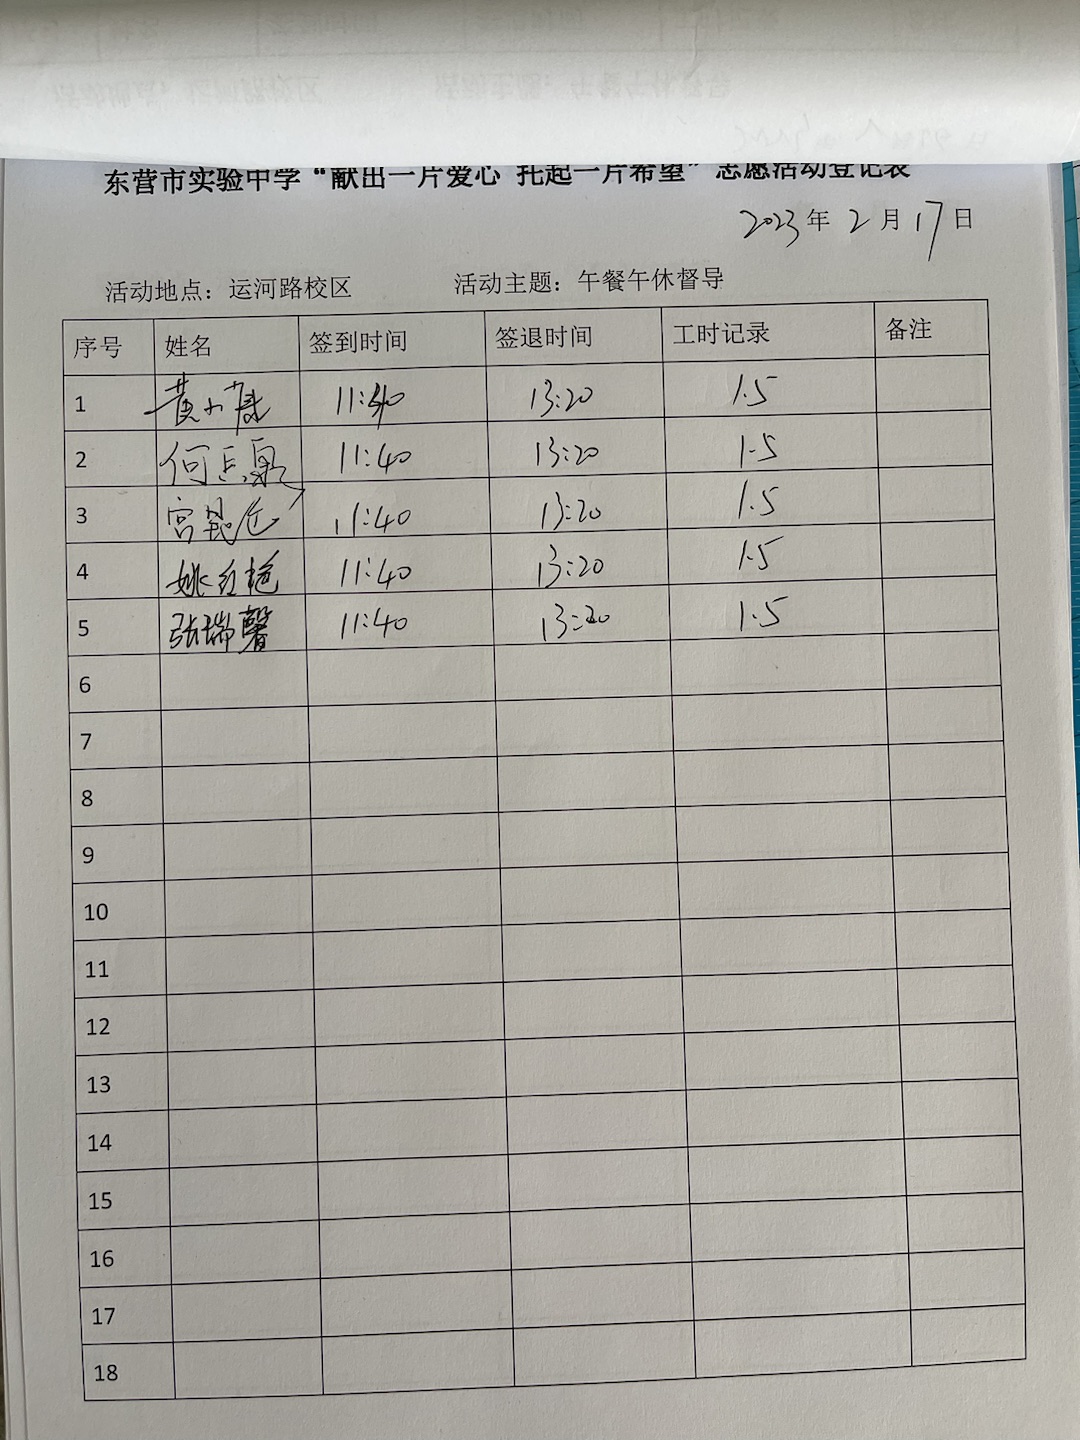 东营市实验中学“献出一片爱心 托起一片希望”志愿活动登记表
2023年 2月17日
活动地点：运河路校区 活动主题：午餐午休督导
序号 姓名 签到时间 签退时间 工时记录 备注
1 黄小康 11:40 13:20 1.5
2 何 泉 11:40 13:20 1.5
3 宫 11:40 13:20 1.5
4 姚红艳 11:40 13:20 1.5
5 张瑞馨 11:40 13:20 1.5
6
7
8
9
10
11
12
13
14
15
16
17
18